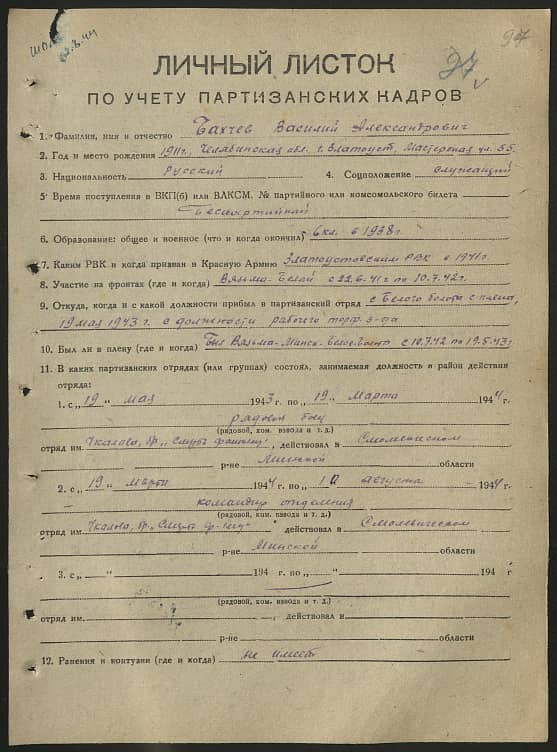 97
27
ЛИЧНЫЙ ЛИСТОК
ПО УЧЕТУ ПАРТИЗАНСКИХ КАДРОВ
1. Фамилия, имя и отчество Бахчев Василий Александрович
2. Год и место рождения 1911г., Челябинская обл. г. Златоуст, Мастерская ул. 55.
3. Национальность Русский 4. Соцположение служащий
5 Время поступления в ВКП(б) или ВЛКСМ, № партийного или комсомольского билета
Беспартийный
6. Образование: общее и военное (что и когда окончил) 6 кл. в 1938г.
7. Каким РВК и когда призван в Красную Армию Златоустовским РВК в 1941г.
8. Участие на фронтах (где и когда) Вязьма-Белой с 22.6.41г по 10.7.42г.
9. Откуда, когда и с какой должности прибыл в партизанский отряд с Белого болота с плена,
19 мая 1943г. с должности рабочего торф. з-да
10. Был ли в плену (где и когда) Был Вязьма-Минск- с 10.7.42 по 19.5.43г
11. В каких партизанских отрядах (или группах) состоял, занимаемая должность и район действия
отряда:
1. с „ 19 " мая 1943 г. по „ 19 " Марта 1944 г.
рядовой боец
(рядовой, ком. взвода и т. д.)
отряд им. Чкалова, бр. „Смерть фашизму", действовал в Смолевичском
р-не Минской области
2. с „ 19 " Марта 1944 г. по „ 10 " августа 1944 г.
командир отделения
(рядовой, ком. взвода и т. д.)
отряд им. Чкалова, бр. „Смерть ф-зму" действовал в Смолевическом
р-не Минской области
3. с „ " 194 г. по „ " 194 г
(рядовой, ком. взвода и т. д.)
отряд им. , действовал в
р-не области
12. Ранения и контузии (где и когда) не имеет